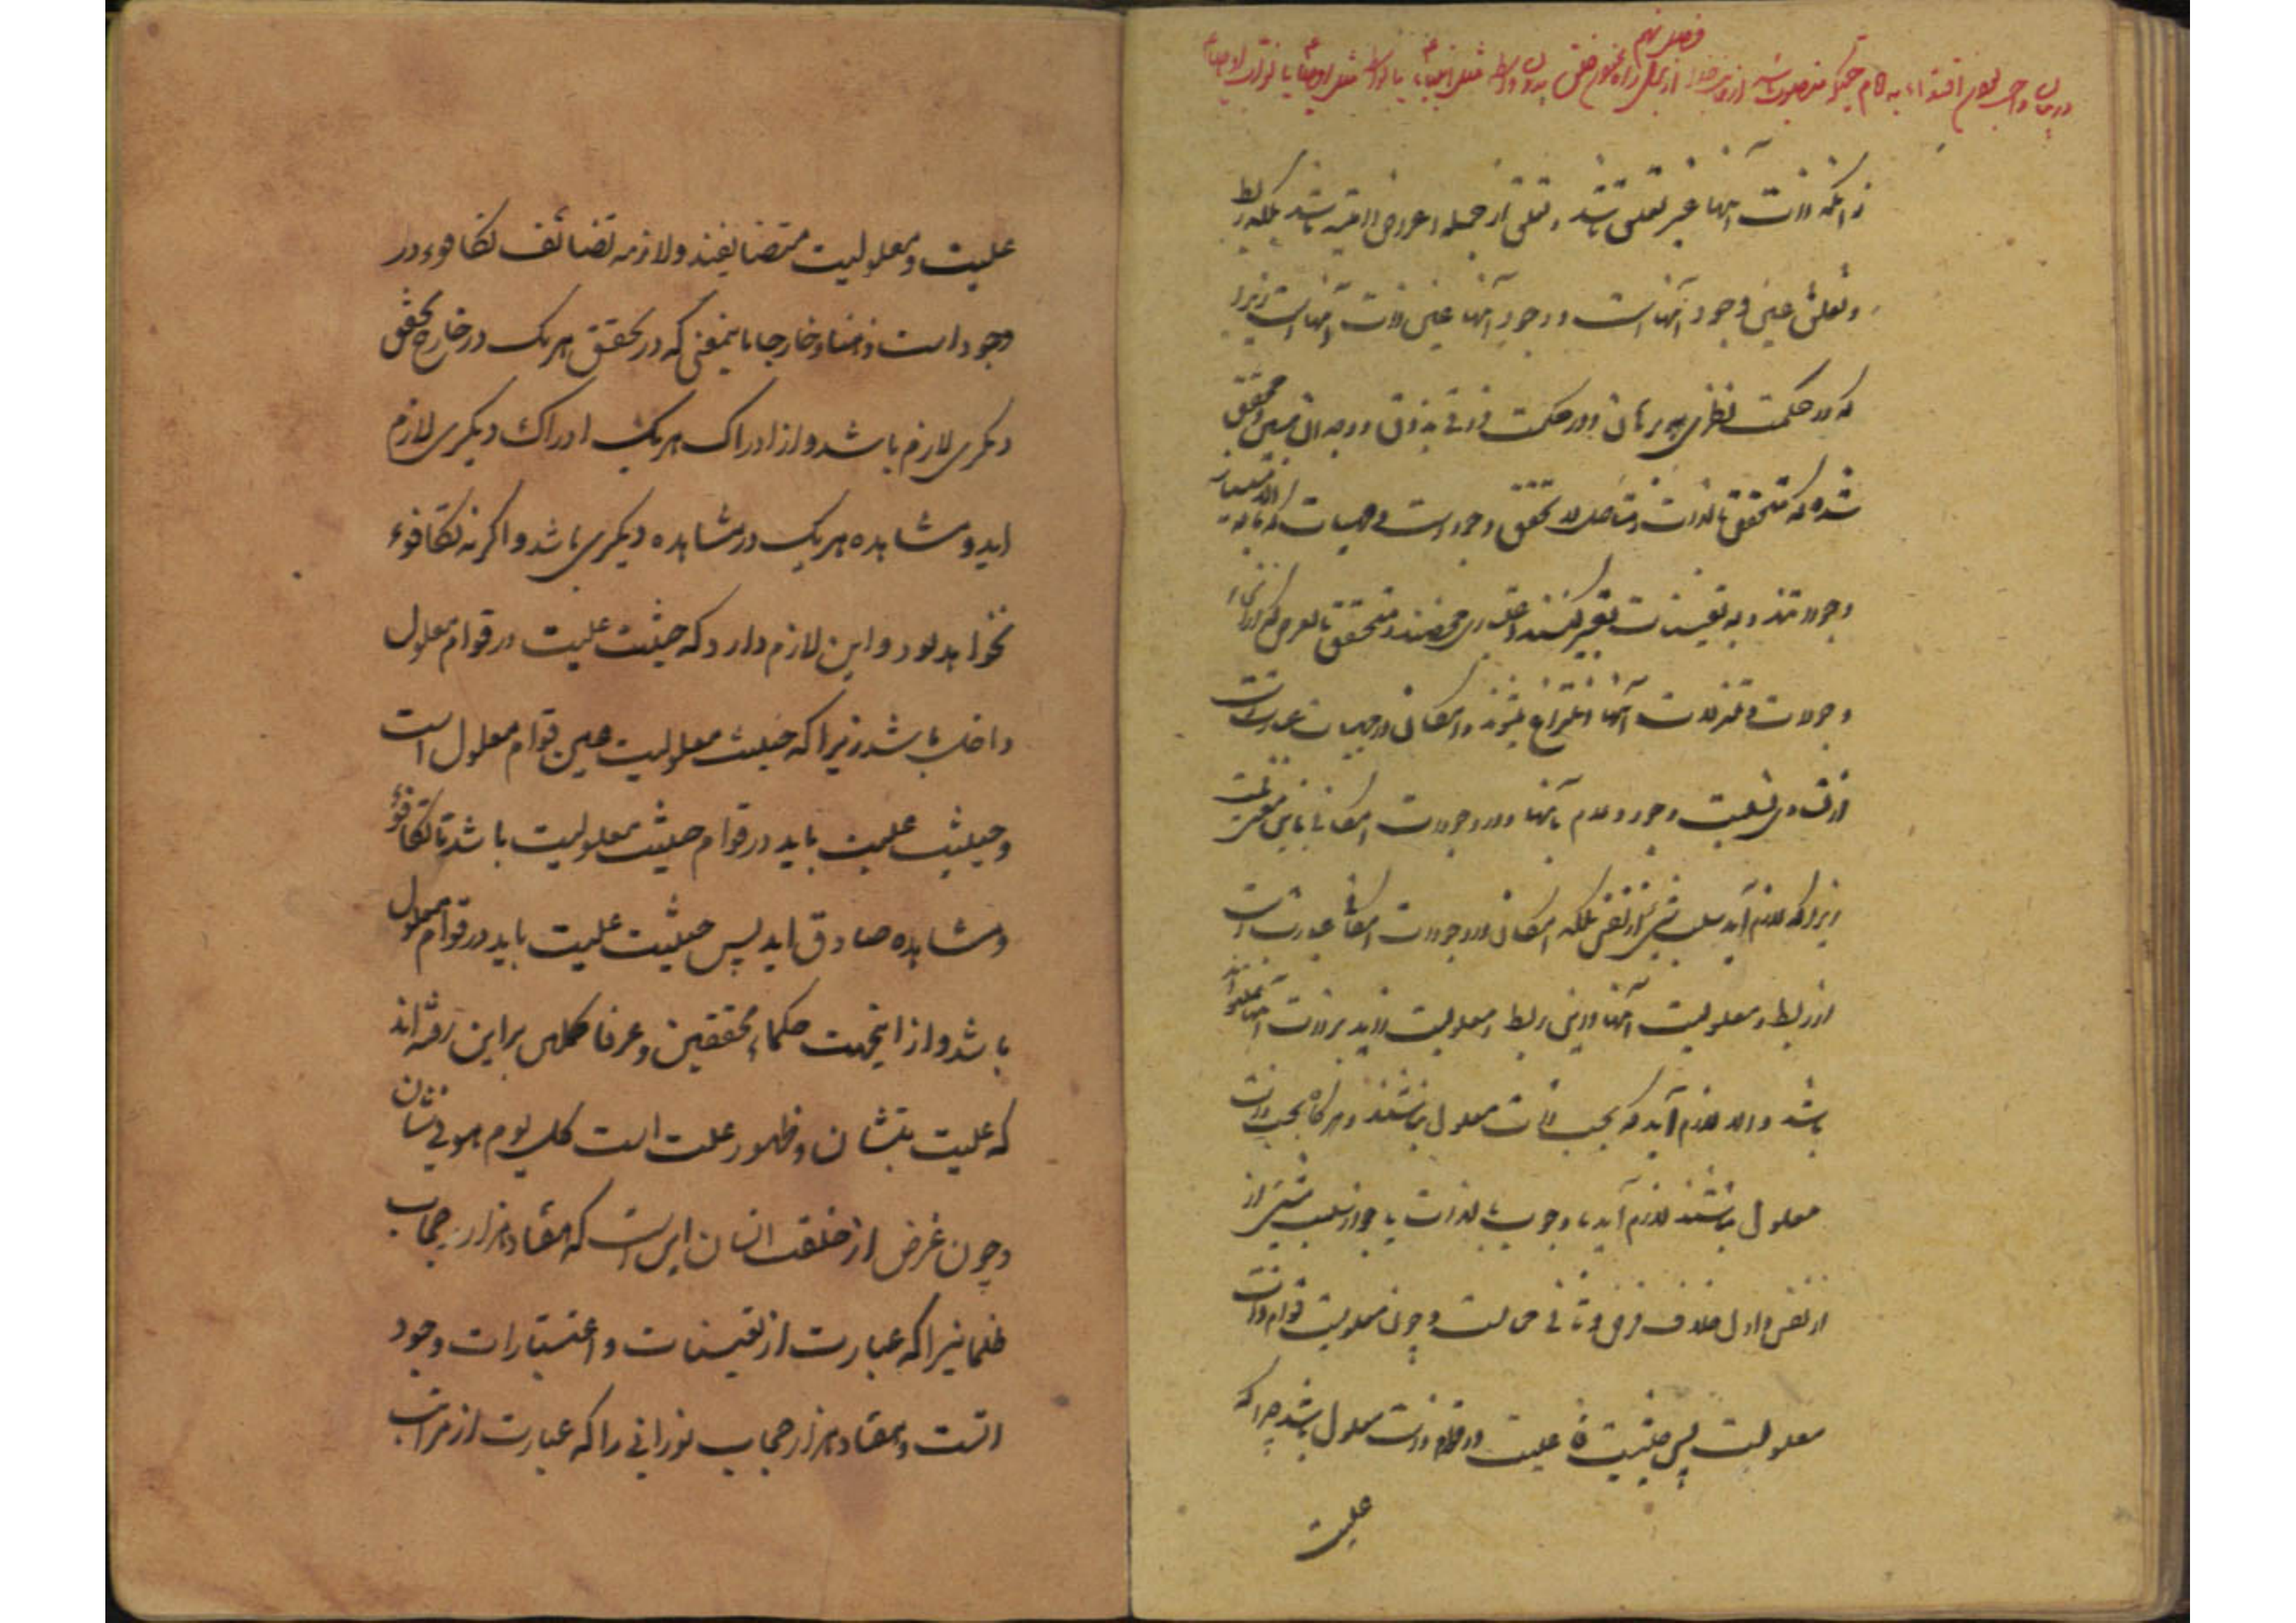 فصل نهم
در بیان واجب بودن اقتداء به کلام منصوب از برای راه نجوم خلق بدون واسطه مثل انبیاء یا بواسطه مثل اوصیاء یا نواب اوصیاء
زانکه ذات آنها غیر تعلق باشد و تعلق از جمله اعراض لاحقه باشد بلکه ربط
و تعلق عین وجود آنهاست و وجود آنها عین ذات آنهاست زیرا
که در حکمت نظری به برهان و در حکمت ذوقی بذوق و وجدان مبین و محقق
شده که متحقق بالذات و متاصل در تحقق وجود است و مهیات که تابع
وجودند و به تعینات تعبیر کنند اعتباری محضند و متحقق بالعرض که از انحاء
وجودات و تنزلات آنها انتزاع میشوند و امکان در مهیات عبارتست
از تساوی نسبت وجود و عدم بآنها و در وجودات امکان باین معنی نیست
زیرا که لازم آید سلب شیء از نفس بلکه امکان در وجودات امکانی عبارت است
از ربط و معلولیت آنها و این ربط و معلولیت زاید بر ذات آنها نمیتواند
باشد و الا لازم آید که بحسب ذات معلول نباشند و هرگاه بحسب ذات
معلول نباشند لازم آید یا وجوب بالذات یا جواز سلب شیء از
از نفس و اول خلاف فرض و ثانی محالست و چون معلولیت قوام ذات
معلولیت پس حیثیت علیت در قوام ذات معلول باشد چرا که
علیت
علیت و معلولیت متضایفند و لازمه تضائف تکافوء در
وجود است ذهنا و خارجا باینمعنی که در تحقق هر یک در خارج تحقق
دیگری لازم باشد و از ادراک هر یک ادراک دیگری لازم
اید و مشاهده هر یک در مشاهده دیگری باشد و اگر نه تکافوء
نخواهد بود و این لازم دارد که حیثیت علیت در قوام معلول
داخل باشد زیرا که حیثیت معلولیت عین قوام معلول است
و حیثیت علیت باید در قوام حیثیت معلولیت باشد تا تکافوء
و مشاهده صادق اید پس حیثیت علیت باید در قوام معلول
باشد و از اینجهت حکماء محققین و عرفا کملین براین رفته اند
که علیت بتشان و ظهور علت است کل یوم هو فی شان
و چون غرض از خلقت انسان این است که هفتاد هزار حجاب
ظلمانیرا که عبارت از تعینات و اعتبارات وجود
است و هفتاد هزار حجاب نورانی را که عبارت از مراتب